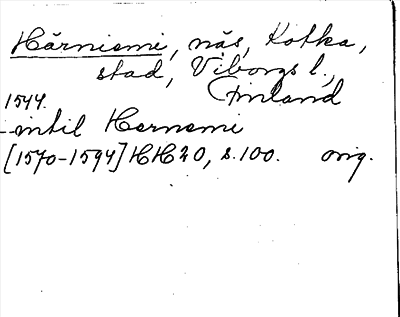 Härniemi, näs, Kotka,
stad, Viborgs l.,
Finland
1544.
intil Hernemi
[1570-1594] HH20, s. 100. orig.